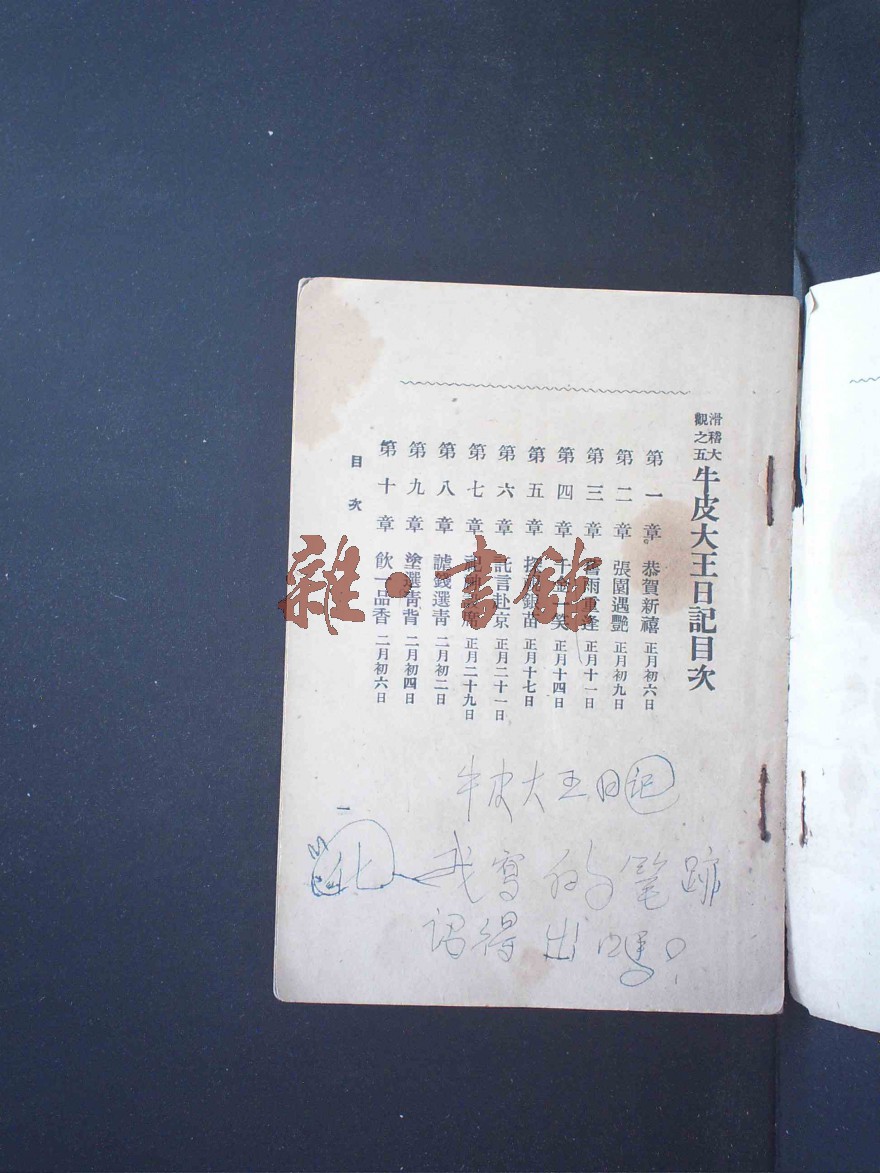 滑稽大觀之五 牛皮大王日記目次
第一章 恭賀新禧 正月初六日
第二章 張園遇艷 正月初九日
第三章 舊雨重逢 正月十一日
第四章 千金一笑 正月十四日
第五章 銀苗 正月十七日
第六章 託言赴京 正月二十一日
第七章 席 正月二十九日
第八章 謔錢選青 二月初二日
第九章 塗選青背 二月初四日
第十章 飲一品香 二月初六日
目次
一
雜·書館
牛皮大王日记
我寫的筆跡
認得出嗎